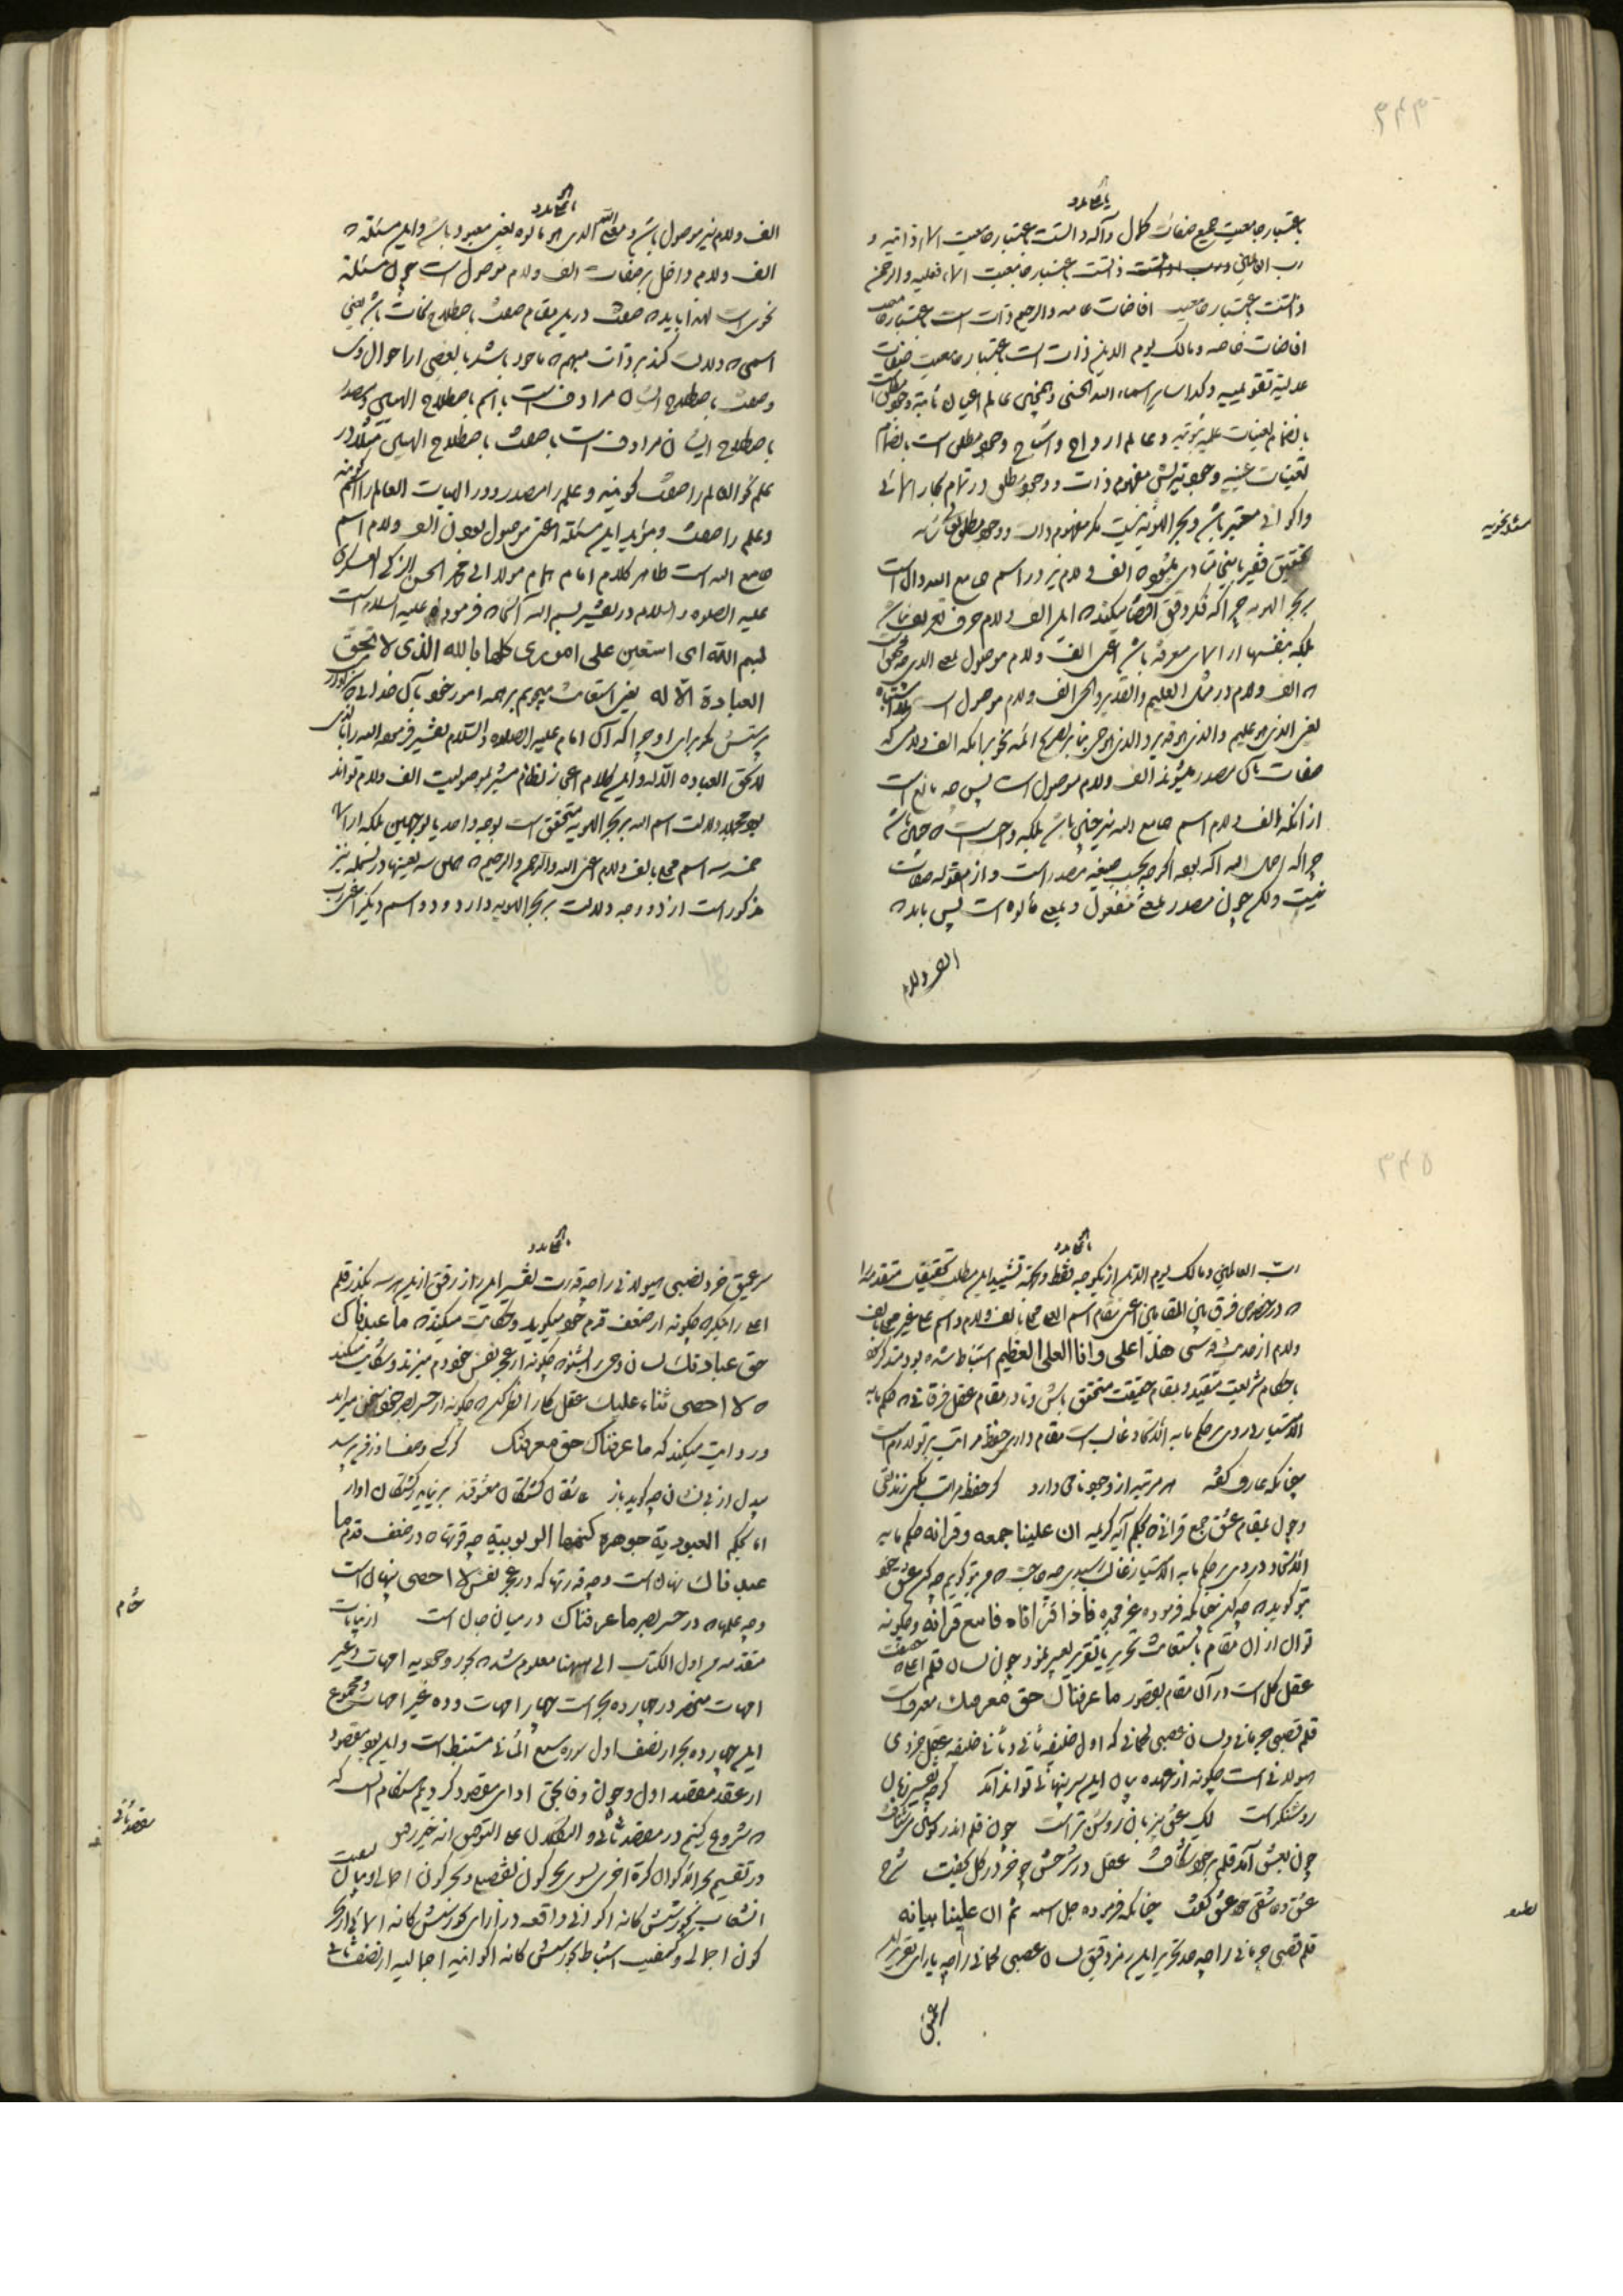 ۳۴۴
باعتبار جامعیت جمیع صفات کمال و آله ذاتست باعتبار جامعیت اسماء ذاتیه و
رب العالمین ذاتست باعتبار جامعیت اسماء فعلیه والرحمن
ذاتست باعتبار جامعیت افاضات عامه والرحیم ذات است باعتبار جامعیت
افاضات خاصه و مالک یوم الدین ذات است باعتبار جامعیت صفات
عدلیه تقویمیه و کذا سایر اسماء الله الحسنی و همچنین عالم اعیان ثابته وجود مطلق است
بانضمام تعینات علمیه ثبوتیه و عالم ارواح و اشباح وجود مطلق است بانضمام
تعینات عینیه وجودیه پس مفهوم ذات و وجود مطلق در تمام بحار اسمائی
و اکوانی معتبر باشد و بحر الهویه نیست مگر مفهوم ذات و وجود مطلق
مسئله نحویه
تحقیق الف و لام نیز در اسم جامع الله دال است
بر بحر الهویه چرا که فکر دقیق اقتضا میکند که این الف و لام حرف تعریف نباشد
بلکه بنفسها از اسمای معرفه باشد اعنی الف و لام موصول بمعنی الذی
که الف و لام در مثل العلیم والقدیر والحی الف و لام موصول است
یعنی الذی هو علیم والذی هو قدیر والذی هو حی بنا بر تصریح ائمه نحو بر آنکه الف و لامی که
صفات بآن مصدر میشوند الف و لام موصول است پس چه مانع است
از آنکه الف و لام اسم جامع الله نیز چنین باشد بلکه واجب است که چنین باشد
چرا که اصل الله اله بود اگر چه بحسب صیغه مصدر است و از مقوله صفات
نیست ولکن چون مصدر بمعنی مفعول و بمعنی مألوه است پس باید که
الف و لام
الف و لام نیز موصول باشد و معنی الله الذی هو مألوه یعنی معبود باشد و این مسئله که
الف و لام داخل بر صفات الف و لام موصول است چون مسئله
نحوی است لهذا باید که صفت در این مقام صفت باصطلاح نحات باشد یعنی
اسمی که دلالت کند بر ذات مبهم که ماخوذ باشد با بعضی از احوال وی
و صفت باصطلاح ایشان مرادف است با اسم باصطلاح الهیین و مصدر
باصطلاح ایشان مرادف است با صفت باصطلاح الهیین مثلا در
علم نحو العالم را صفت گویند و علم را مصدر و در الهیات العالم را اسم گویند
و علم را صفت و مؤید این مسئله اعنی موصول بودن الف و لام اسم
جامع الله است ظاهر کلام امام همام مولانا ابی محمد الحسن الزکی العسکری
علیه الصلوة والسلام در تفسیر بسم الله آنجا که فرموده علیه السلام است
بسم الله ای استعین علی اموری کلها بالله الذی لا تحق
العبادة الا له یعنی استعانت میجویم بر همه امور خود بآن خدائی که سزاوار
پرستش مگر برای او چرا که آن امام علیه الصلوة والسلام تفسیر فرموده الله را بالذی
لا تحق العبادة الا له و این کلام اعجاز نظام مشیر بموصولیت الف و لام تواند
بود بالجمله دلالت اسم الله بر بحر الهویه متحقق است بوجه واحد یا بوجهین بلکه از اسماء
خمسه سه اسم محلی بالف و لام اعنی الله والرحمن والرحیم که همین سه بعینها در بسمله نیز
مذکور است از دو وجه دلالت بر بحر الهویه دارد و دو اسم دیگر اعنی رب
۳۴۵
رب العالمین و مالک یوم الدین از یکوجه فقط و تتمه تشیید این مطلب تحقیقات متقدمه را
که در خصوص فرق بین المقامین اعنی مقام اسم العلی محلی بالف و لام و اسم علی غیر محلی بالف
و لام از حدیث قدسی هذا علی وانا العلی العظیم استنباط شده بود متذکر شو
باحکام شریعت متقید و بمقام حقیقت متحقق باش و تا در مقام عقل فرقانی که حکم ما به
الامتیاز در وی بر حکم ما به الاتحاد غالب است مقام داری حفظ مراتب بر تو لازم است
چنانکه عارف گفته هر مرتبه از وجود نامی دارد گر حفظ مراتب نکنی زندیقی
و چون بمقام عشق جمع قرانی که بحکم آیه کریمه ان علینا جمعه و قرانه حکم ما به
الاتحاد در وی بر حکم ما به الامتیاز غالب رسیدی چه حاجت که من بتو گویم چه کن عشق خود
بتو گوید که چه کن چنانکه فرموده عز مجده فاذا قرأناه فاتبع قرانه و چگونه
توان از آن مقام باستعانت تحریر یا تقریر تعبیر نمود و چون لسان قلم اعلی که حقیقت
عقل کل است در آن مقام بقصور ما عرفناک حق معرفتک معترف است
قلم قصبی جسمانی و لسان عصبی لحمانی که اول خلیفه ثانی و ثانی خلیفه عقل جزوی
هیولانی است چگونه از عهده بیان این سر پنهانی تواند آمد گر چه تفسیر زبان
روشنگر است لیک عشق بیزبان روشنتر است چون قلم اندر نوشتن می شتافت
چون بعشق آمد قلم بر خود شکافت عقل در شرحش چو خر در گل بخفت شرح
عشق و عاشقی هم عشق گفت چنانکه فرموده جل اسمه ثم ان علینا بیانه
لطیفه
قلم قصبی جسمانی را چه حد تحریر این رمز دقیق لسان عصبی لحمانی را چه یارای تقریر این
سر عمیق خرد نصیبی هیولانی را چه قدرت تفسیر این راز رقیق از این هر سه بگذر قلم
اعلی را بنگر که چگونه از ضعف قدم خود میگوید و حکایت میکند که ما عبدناک
حق عبادتک لسان وحی را بشنو که چگونه از عجز نفس خود دم میزند و شکایت میکند
که لا احصی ثناء علیک عقل کل را نظر کن که چگونه از حسر بصر خود سخن میراند
و روایت میکند که ما عرفناک حق معرفتک گر کسی وصف او ز من پرسد
بیدل از بی نشان چه گوید باز عاشقان کشتگان معشوقند بر نیاید ز کشتگان آواز
اما بحکم العبودیة جوهرة کنهها الربوبیة چه قوتها که در ضعف قدم ما
عبدناک نهان است و چه قدرتها که در عجز نفس لا احصی پنهان است
و چه علمها که در حسر بصر ما عرفناک در میان جان است از بیانات
ختام
متقدمه من اول الکتاب الی ههنا معلوم شد که بحور وجودیه امهات و غیر
امهات منحصر در چهارده بحر است چهار امهات و ده غیر امهات و مجموع
این چهارده بحر از نصف اول سوره سبع المثانی مستنبط است و این بود مقصود
از عقد مقصد اول و چون وفا بحق ادای مقصود کردیم هنگام آنست که
مقصد ثانی
که شروع کنیم در مقصد ثانی و التکلان علی التوفیق انه خیر رفیق
در تقسیم بحر الاکوان کرة اخری بسوی بحر کون تفصیلی و بحر کون اجمالی و بیان کیفیت
انشعاب بحور شش گانه اکوانی واقعه در ازای بحور شش گانه اسمائی از بحر
کون اجمالی و کیفیت استنباط بحور شش گانه اکوانیه اجمالیه از نصف ثانی